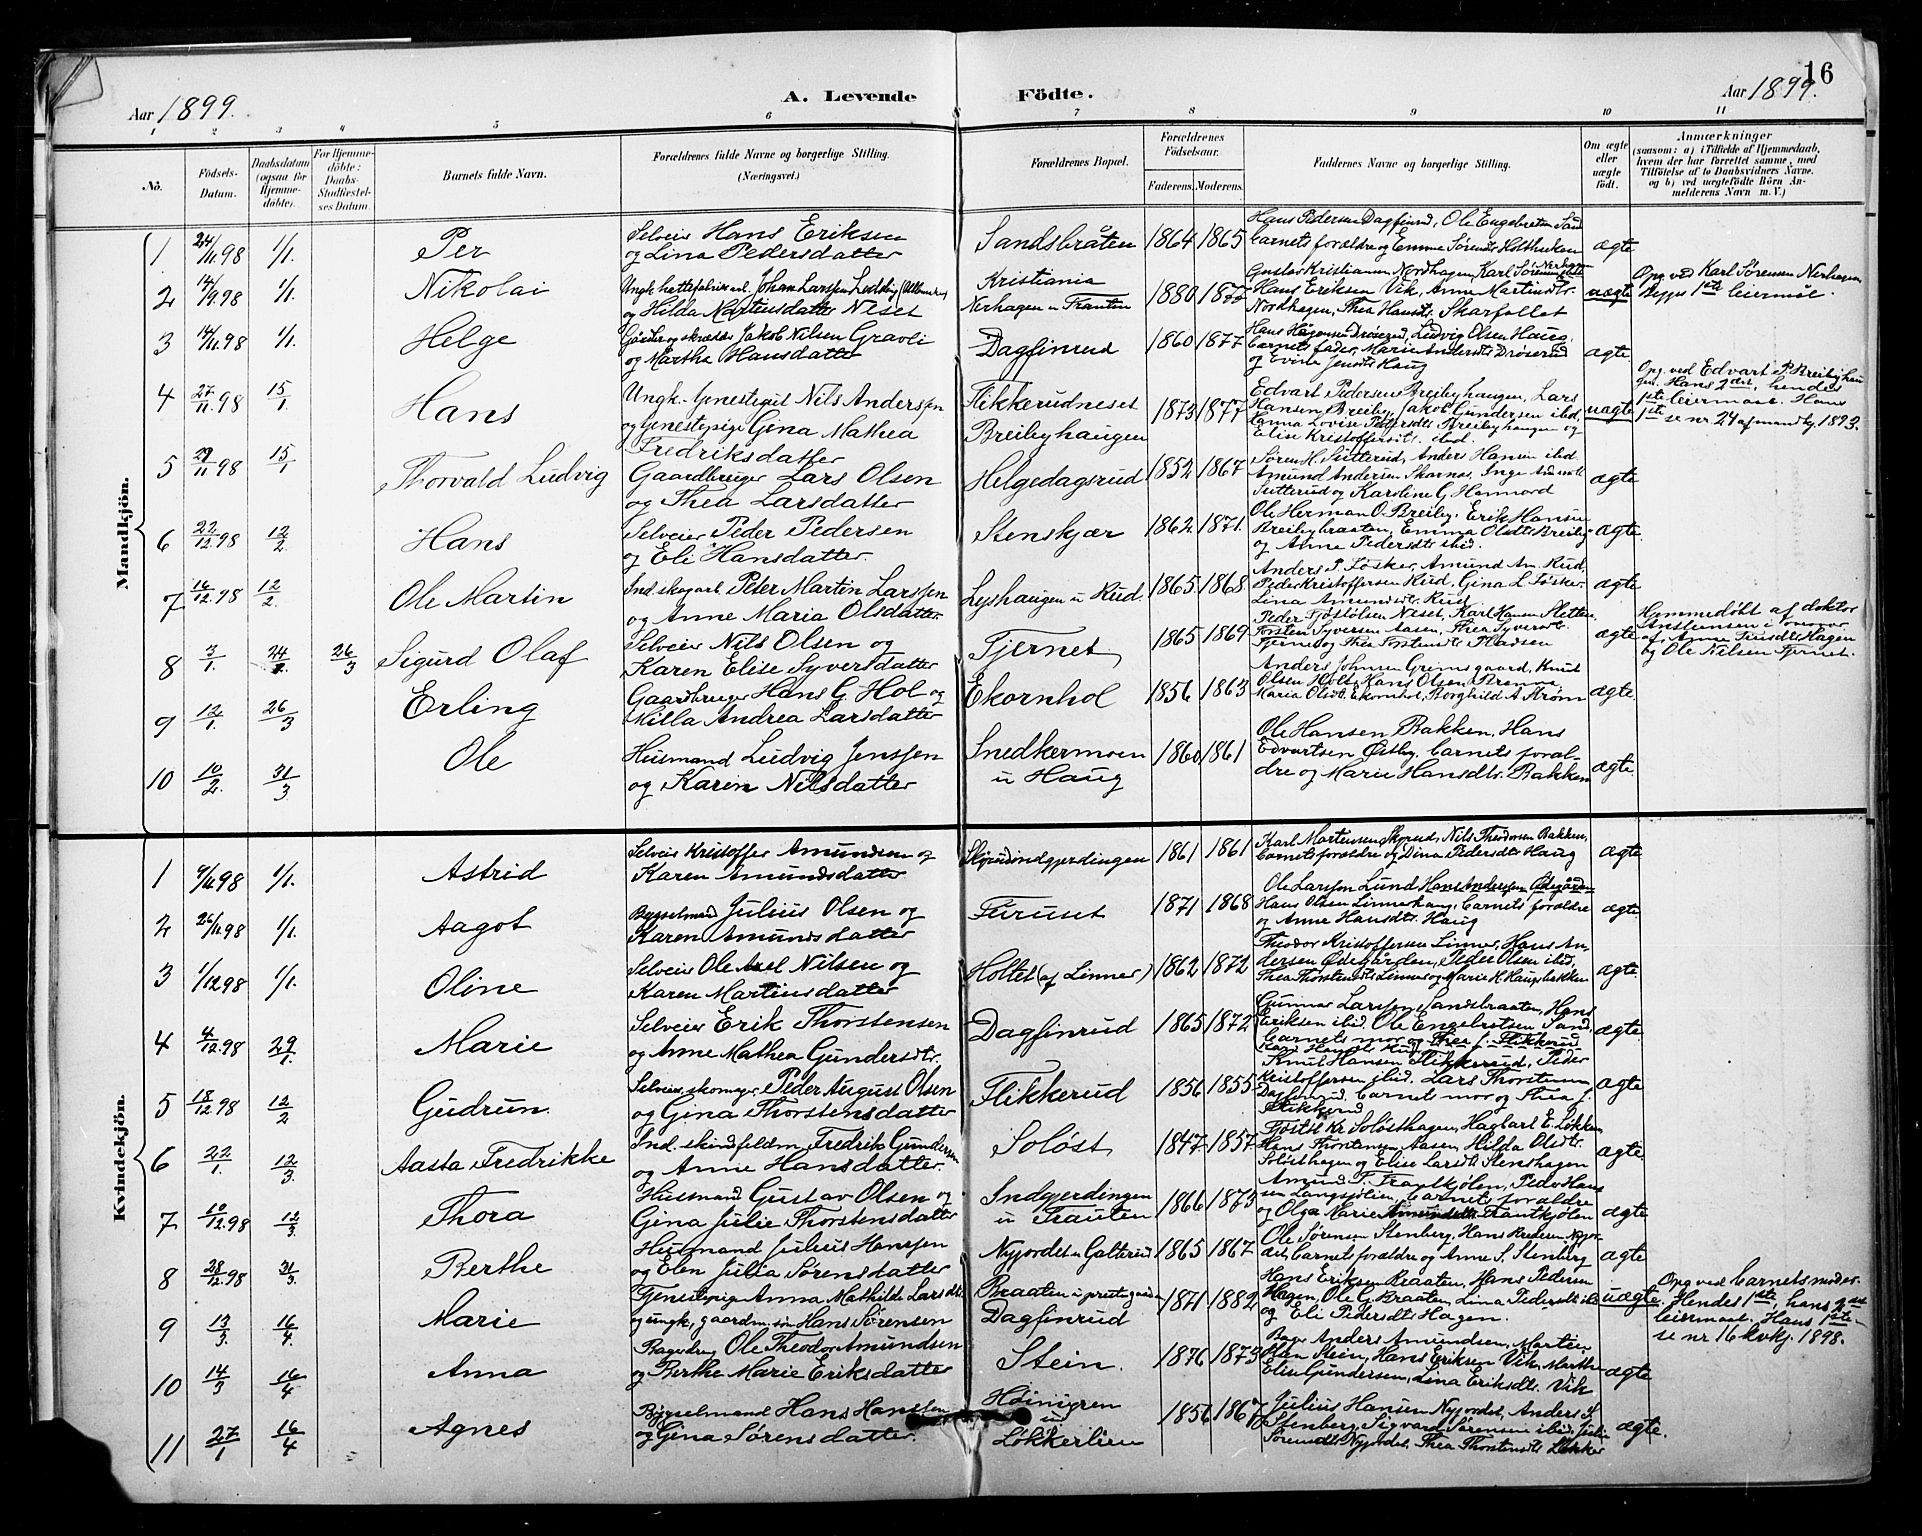 Aar 1899.
A. Levende Födte.
Aar 1899.
16
1 2 3 4 5 6 7 8 9 10 11
No.
Födsels-Datum.
Daabsdatum (ogsaa for Hjemme-döbte).
For Hjemme-döbte: Daabs-Stadfæstel-ses Datum.
Barnets fulde Navn.
Forældrenes fulde Navne og borgerlige Stilling.
(Næringsvei.)
Forældrenes Bopæl.
Forældrenes Födselsaar.
Faderens. Moderens.
Faddernes Navne og borgerlige Stilling.
Om ægte eller uægte födt.
Anmærkninger
(saasom: a) i Tilfælde af Hjemmedaab,
hvem der har forrettet samme, med
Tilföielse af to Daabsvidners Navne.
og b) ved uægtefödte Börn An-
melderens Navn m. V.)
Mandkjön.
1 24/11.98 1/1. Per
Selveier Hans Eriksen
og Lina Pedersdatter
Sandsbråten 1864 1865
Hans Pedersen Dagfinrud, Ole Engebretsen Sand
barnets forældre og Emma Sørensdt. Holthuskan
ægte
2 14/9.98 1/1. Nikolai
Ungk. hattefabrikarb. Johan Larssen
og Hilda Martinsdatter Neset
Kristiania
Nerhagen u Frauten
1880
Gustav Kristiansen Nordhagen, Karl Sørensen Nerhagen
Hans Eriksen Vik, Anne Martinsdtr.
Nordhagen, Thea Hansdt. Skarfollet
uægte
Opg. ved Karl Sørensen Nerhagen
Begges 1ste leiermål.
3 14/11.98 1/1. Helge
Gårdbr og skrædder Jakob Nilsen Gravli
og Martha Hansdatter
Dagfinrud 1860 1877
Hans Hågensen Drøserud, Ludvig Olsen Haug,
barnets fader, Marie Andersdt. Drøserud
og Evine Jensdt. Haug
ægte
4 27/11.98 15/1. Hans
Ungk. tjenestegut Nils Anderssen
og tjenestepige Gina Mathea
Fredriksdatter
Flikkerudneset
Breibyhaugen
1873 1877
Edvart Pedersen Breibyhaugen, Lars
Hansen Breiby, Jakob Gundersen ibid,
Lovise Pedersdt. Breibyhaugen og
Elise Kristoffersdt. ibid.
uægte
Opg. ved Edvart P. Breibyhau
gen. Hans 2det, hendes
1ste leiermaal. Hans
1ste se nr 24 af mandkj. 1893.
5 29/11 98 15/1 Thorvald Ludvig
Gaardbruger Lars Olsen
og Thea Larsdatter
Helgedagsrud 1852 1867
Søren H. Sutterud, Anders Hansen ibid
Amund Andersen Skarnæs, Inge
Sutterud og Karoline G. Hennord
ægte
6 22/12.98 12/2 Hans
Selveier Peder Pedersen
og Eli Hansdatter.
Stenskjær 1862. 1871.
Ole Herman O. Breiby, Erik Hansen
Breibybraaten, Emma Olsdt. Breiby
og Anne Pedersdt. ibid.
ægte.
7 16/12.98 12/2. Ole Martin
Ind. skogarb. Peter Martin Larssen
og Anne Maria Olsdatter.
Lyshaugen u Rud. 1865. 1868.
Anders P. Fosker, Amund Am. Rud,
Peder Kristoffersen Rud, Gina L. Fosker
Lina Amundsdt. Rud
ægte
8 3/1. 24/1. 26/3 Sigurd Olaf
Selveier Nils Olsen og
Karen Elise Syversdatter
Tjernet 1865 1869
Peder Fjøstolsen Neset, Karl Hansen Sletten
Torsten Syversen Aasen, Thea Syversdt.
Tjernet og Thea Torstensdt. Pladsen
ægte
Hjemmedøbt af doktor
Anstensen i overvær
af Anne Truidsdt. Hagen
og Ole Nilsen Tjernet.
9 12/1. 26/3 Erling
Gaardbruger Hans G. Hol og
Milla Andrea Larsdatter
Ekornhol 1856 1863
Anders Johnsen Grimsgaard, Knut
Olsen Holt, Hans Olsen Brenna
Maria Olsdt. Ekornhol, Borghild A. Strøm
ægte.
10 10/2. 31/3 Ole
Husmand Ludvig Jenssen
og Karen Nilsdatter
Snedkermoen
u Haug
1860 1861
Ole Hansen Bakken, Hans
Edvartsen Østby, barnets foræl-
dre og Marie Hansdtr. Bakken
ægte.
Kvindekjön.
1 9/11.98 1/1. Astrid
Selveier Kristoffer Amundsen og
Karen Amundsdatter
Skjerudindgjerdingen 1861 1861
Karl Martensen Skjerud, Nils Theodorsen Bakken,
barnets forældre og Dina Pedersdt. Haug
ægte
2 26/11.98 1/1. Aagot
Bygselmand Julius Olsen og
Karen Amundsdatter
Furuset 1871 1868
Ole Larssen Lund, Hans Anderssen Ødegården
Hans Olsen Linnerhaug, barnets forældre
og Anne Hansdtr. Haug
ægte.
3 1/12.98 1/1. Oline
Selveier Ole Axel Nilsen og
Karen Martinsdatter
Holtet (af Linner) 1862 1872
Theodor Kristoffersen Linner, Hans An-
dersen Ødegården, Peder Olsen ibid,
Thea Thorstensdt. Linner og Marie H. Haugsbakken
ægte.
4 4/12.98 29/1. Marie
Selveier Erik Thorstensen
og Anne Mathea Gundersdtr.
Dagfinrud 1865 1872
Gunnar Larssen Sandsbraaten, Hans
Eriksen ibid. Ole Engebretsen Sand,
barnets mor og Thea J. Flikkerud
ægte.
5 18/12.98 12/2 Gudrun
Selveier, skomager Peder August Olsen
og Gina Thorstensdatter
Flikkerud 1856 1855
Knut Hansen Flikkerud, Peder
Kristoffersen ibid. Lars Thorstensen
Dagfinrud, barnets mor og Thea J.
Flikkerud
ægte
6 22/1. 12/3. Aasta Fredrikke
Ind. skindfeldm. Fredrik Gundersen
og Anne Hansdatter.
Soløst 1847 1857
Fjøstl Kr. Soløsthagen, Hagbart E. Løkken
Hans Thorstensen Aasen, Hilda Olsdtr.
Soløsthagen og Elise Larsdt. Stenshagen
ægte.
7 10/12.98 12/3 Thora
Husmand Gustav Olsen og
Gina Julie Thorstensdatter
Indgjerdingen
u Frauten
1866 1873
Amund T. Frautkjølen, Peder Hans
sen Langsjølien, barnets forældre
og Olga Marie Frautkjølen
ægte
8 28/12.98 31/3. Berthe
Husmand Julius Hanssen
og Elen Julia Sørensdatter
Nyjordet u Galterud 1865 1867
Ole Sørensen Stenberg, Hans Pedersen Nyjor-
det, barnets forældre og Anne S. Stenberg
ægte
9 13/3 16/4. Marie
Tjenestepige Anna Mathilde Larsdtr.
og ungk., gaardm. søn Hans Sørensen
Braaten u prestegaarden
Dagfinrud
1871 1882
Hans Eriksen Braaten, Hans Pedersen
Hagen, Ole G. Braaten, Lina Pedersdt. ibid
og Eli Pedersdt. Hagen.
uægte.
Opg. ved barnets moder.
Hendes 1ste, hans 2det
leiermaal. Hans 1ste
se nr 16 kvkj. 1898.
10 14/3 16/4 Anna
Ole Theodor Amundsen
og Berthe Marie Eriksdatter
Stein. 1876 1873
Anders Amundsen, Martin
Stein, Hans Eriksen Vik, Marthe
Elise Gundersen, Lina Eriksdtr. Vik
ægte
11 27/1 16/4 Agnes
Bygselmand Hans Hanssen
og Gina Sørensdatter.
Høimyren
u
Løkkerlien
1856 1867
Julius Hansen Nyjordet, Anders S.
Stenberg, Sigvard Sørensen ibid,
Sørensdt. Nyjordet, Thea Thorstensdt. Løkker
ægte.